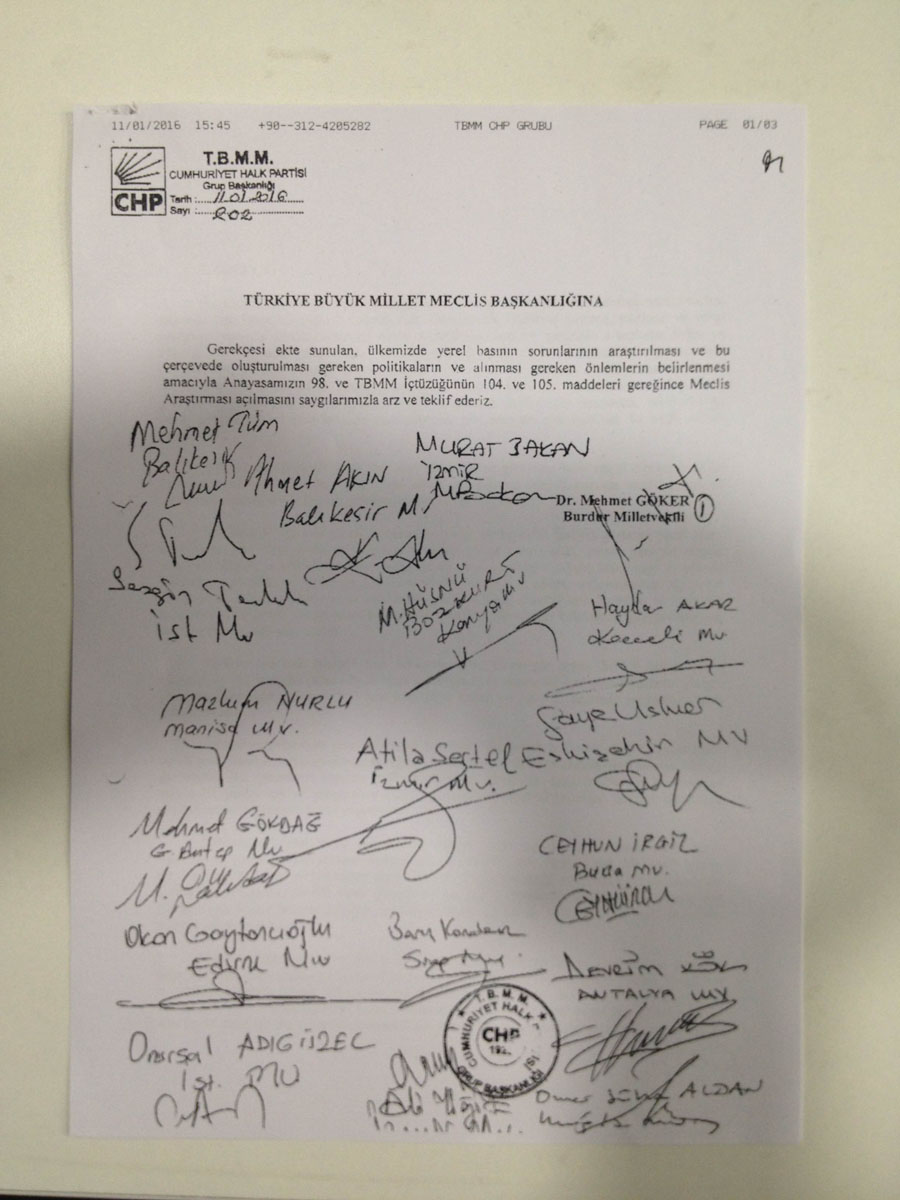 11/01/2016 15:45 +90--312-4205282 TBMM CHP GRUBU PAGE 01/03
T.B.M.M.
CUMHURİYET HALK PARTİSİ
Grup Başkanlığı
CHP
Tarih :.....11.01.2016.....
Sayı :.....202.....
TÜRKİYE BÜYÜK MİLLET MECLİS BAŞKANLIĞINA
Gerekçesi ekte sunulan, ülkemizde yerel basının sorunlarının araştırılması ve bu
çerçevede oluşturulması gereken politikaların ve alınması gereken önlemlerin belirlenmesi
amacıyla Anayasamızın 98. ve TBMM İçtüzüğünün 104. ve 105. maddeleri gereğince Meclis
Araştırması açılmasını saygılarımızla arz ve teklif ederiz.
Mehmet Tüm
Balıkesir
MURAT BAKAN
İzmir
Ahmet AKIN
Balıkesir Mv
Dr. Mehmet GÖKER 1
Burdur Milletvekili
Sezgin
ist Mv
M. HÜSNÜ
BOZKURT
Konya Mv
Haydar AKAR
Kocaeli Mv
Mazlum NURLU
Manisa Mv.
Gaye Usluer
Eskişehir MV
Atila Sertel
İzmir Mv.
Mehmet GÖKDAĞ
G. Antep Mv
CEYHUN İRGİL
Bursa Mv.
Okan Gaytancıoğlu
Edirne Mv
Barış Karadeniz
Sinop Mv.
DEVRİM KÖK
ANTALYA MV
Onursal ADIGÜZEL
İst. MV
T.B.M.M.
CUMHURİYET HALK
CHP
GRUP BAŞKANLIĞI
Ömer Süha ALDAN